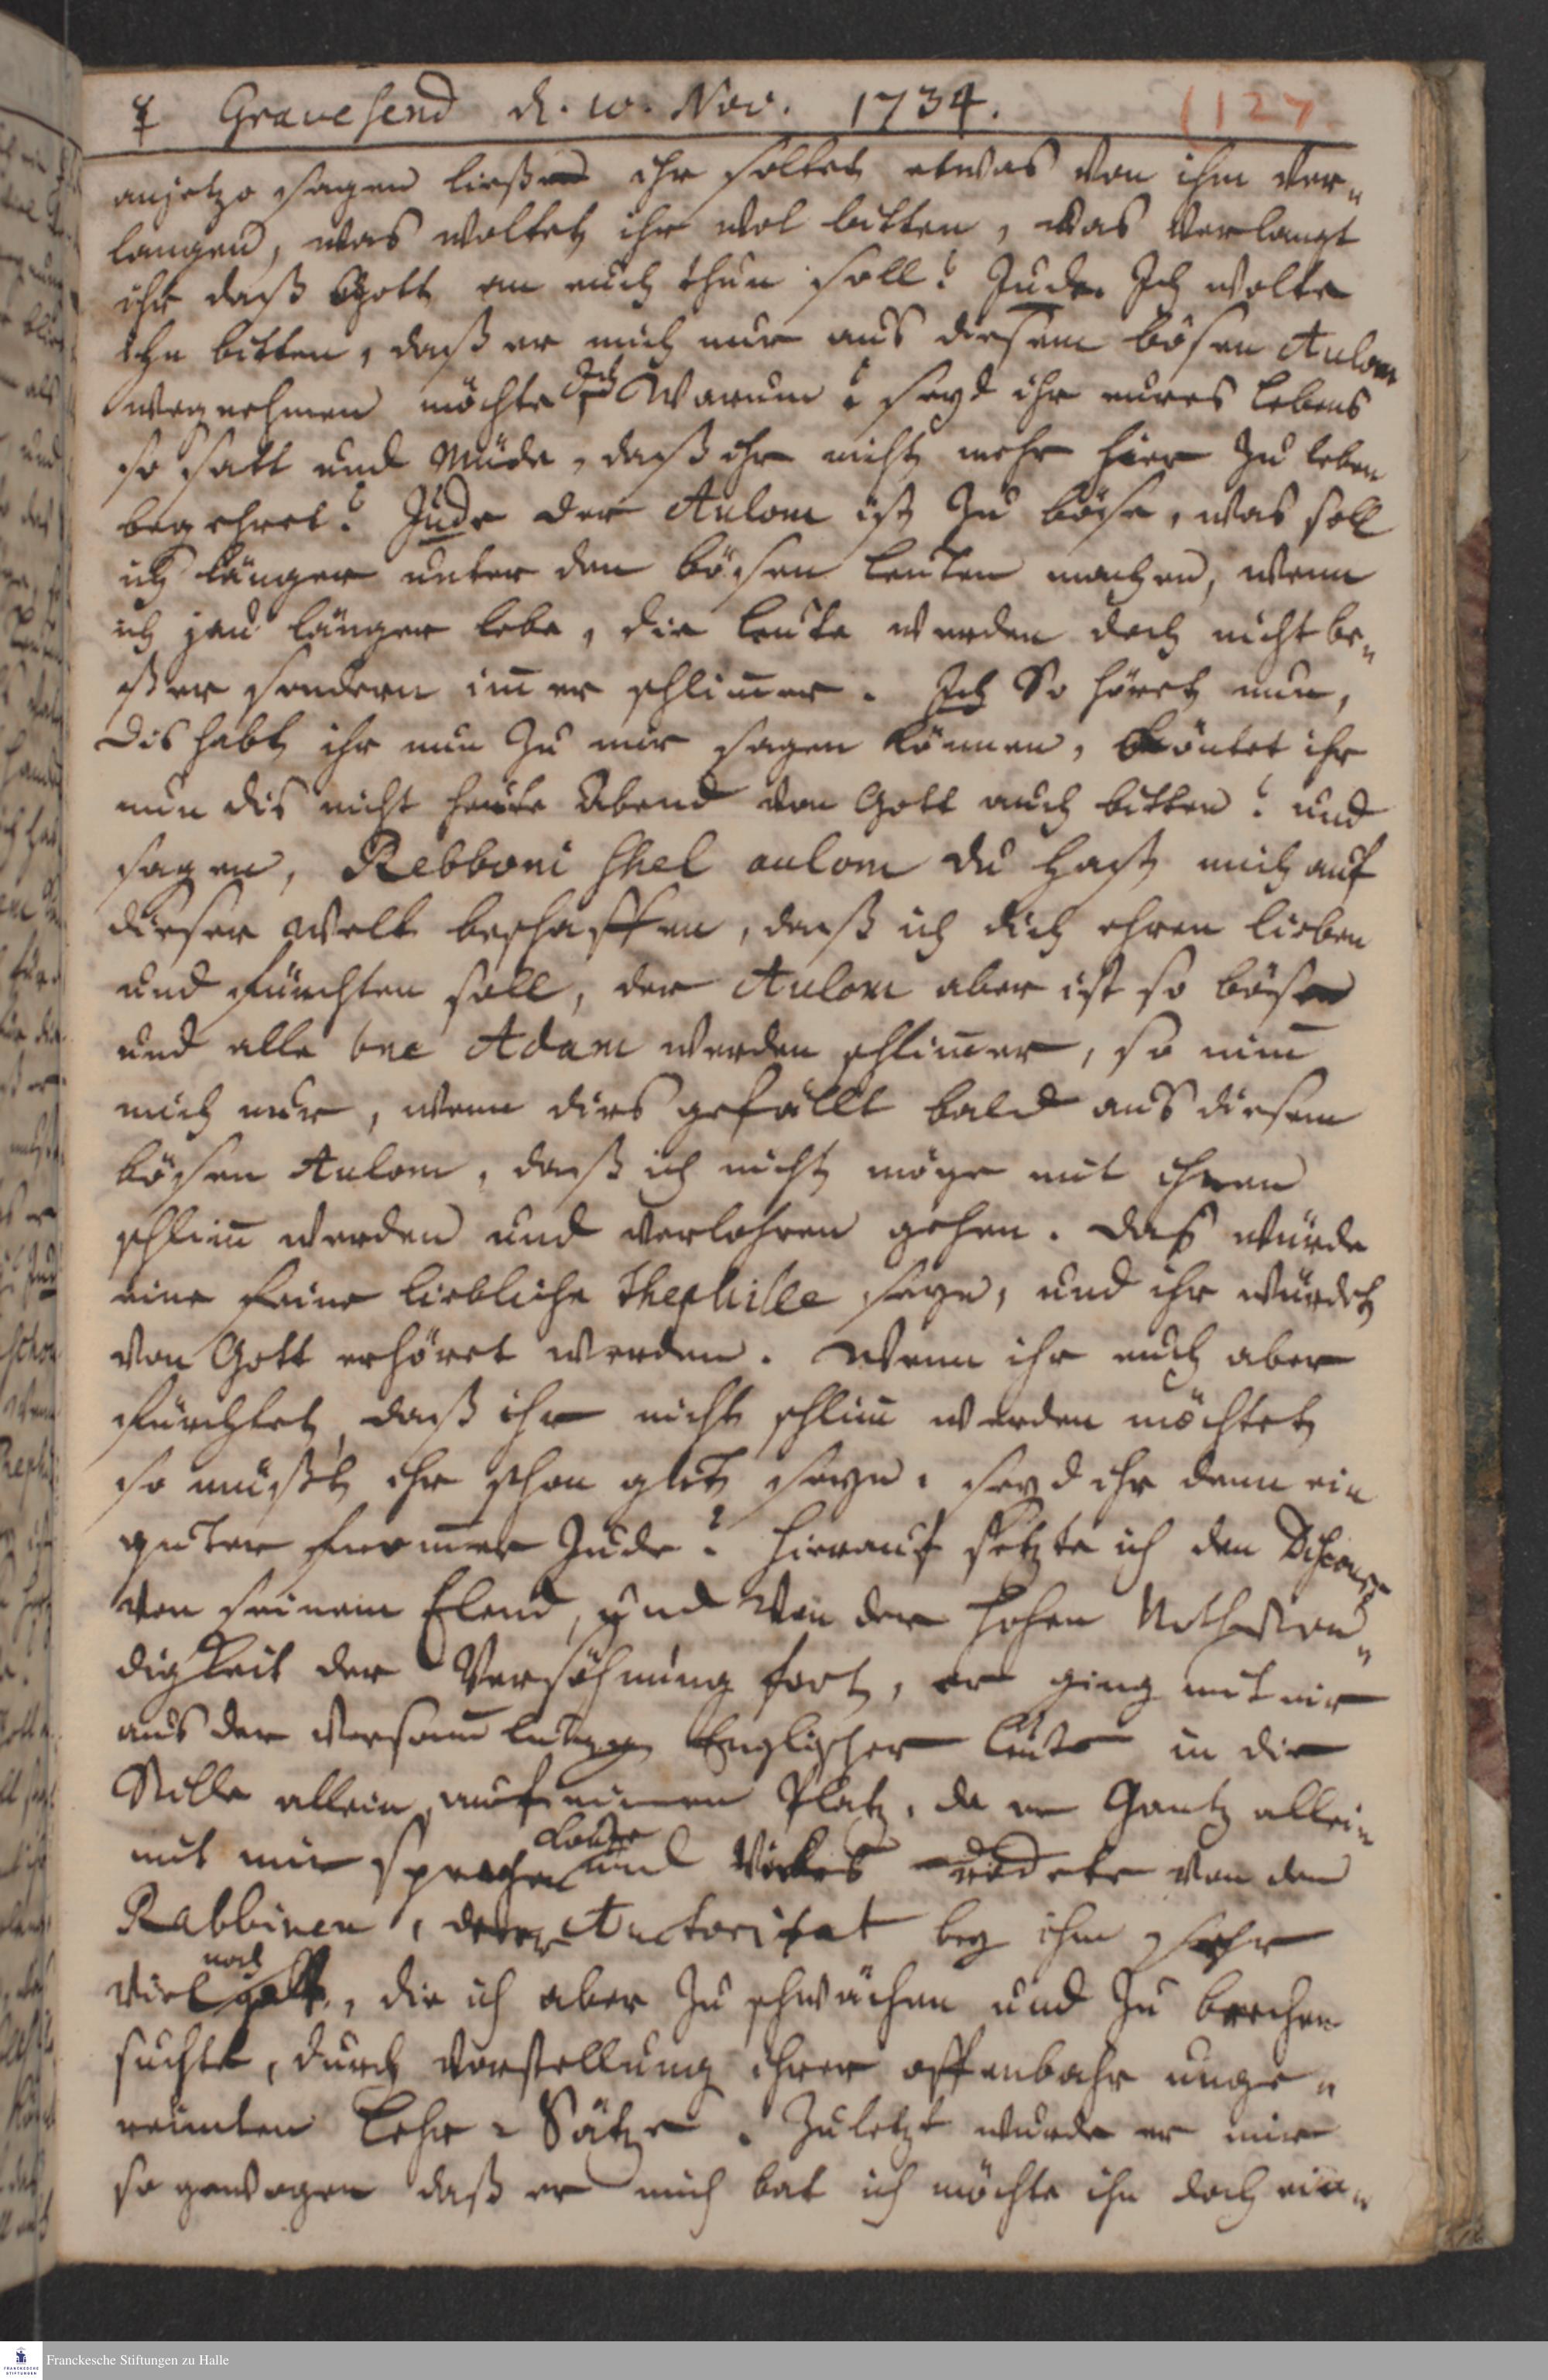 ☿ Gravesend d. 10. Nov. 1734. (127
anjetzo sagen ließe ihr soltet etwas von ihm ver„
langen, was woltet ihr wol bitten, was verlangt
ihr daß Gott an euch thun soll? Jude. Ich wolte
Ihn bitten, daß er mich nur aus diesem bösen Aulom
wegnehmen möchte. Ich Warum? seyd ihr eures Lebens
so satt und müde, daß ihr nicht mehr hier zu leben
begehret? Jude der Aulom ist zu böse, was soll
ich länger unter den bösen Leuten machen, wenn
ich länger lebe, die Leute werden doch nicht be„
ßer sondern im̄er schlim̄er. Ich So höret nun,
Dis habt ihr nun zu mir sagen können, köntet ihr
nun dis nicht heute Abend von Gott auch bitten? und
sagen, Rebboni shel aulom du hast mich auf
dieser Welt beschaffen, daß ich dich ehren lieben
und fürchten soll, der Aulom aber ist so böse
und alle bne Adam werden schlim̄er, so nim̄
mich nur, wenn dirs gefällt bald aus diesem
bösen Aulom, daß ich nicht möge mit ihnen
schlim̄ werden und verlohren gehen. Das würde
eine feine liebliche Thephille seyn, und ihr würdet
von Gott erhöret werden. Wenn ihr euch aber
fürchtet, daß ihr nicht schlim̄ werden möchtet
so müßt ihr schon gut seyn. seyd ihr denn ein
guter from̄er Jude? Hierauf setzte ich den Discours
von seinem Elend, und von der hohen Nothwen„
digkeit der Versöhnung fort, er ging mit mir
aus der Versam̄lung Englischer Leute in die
Stille allein, auf einen Platz, da er Gantz allein
mit mir sprache und vieles redete von den
Rabbinen, derer Auctoritat bey ihm sehr
viel noch galt, die ich aber zu schwächen und zu brechen
suchte, durch Vorstellung ihrer offenbahr unge„
reimten Lehr-Sätze. Zuletzt wurde er mir
so gewogen daß er mich bat ich möchte ihn doch ein„
Franckesche Stiftungen zu Halle